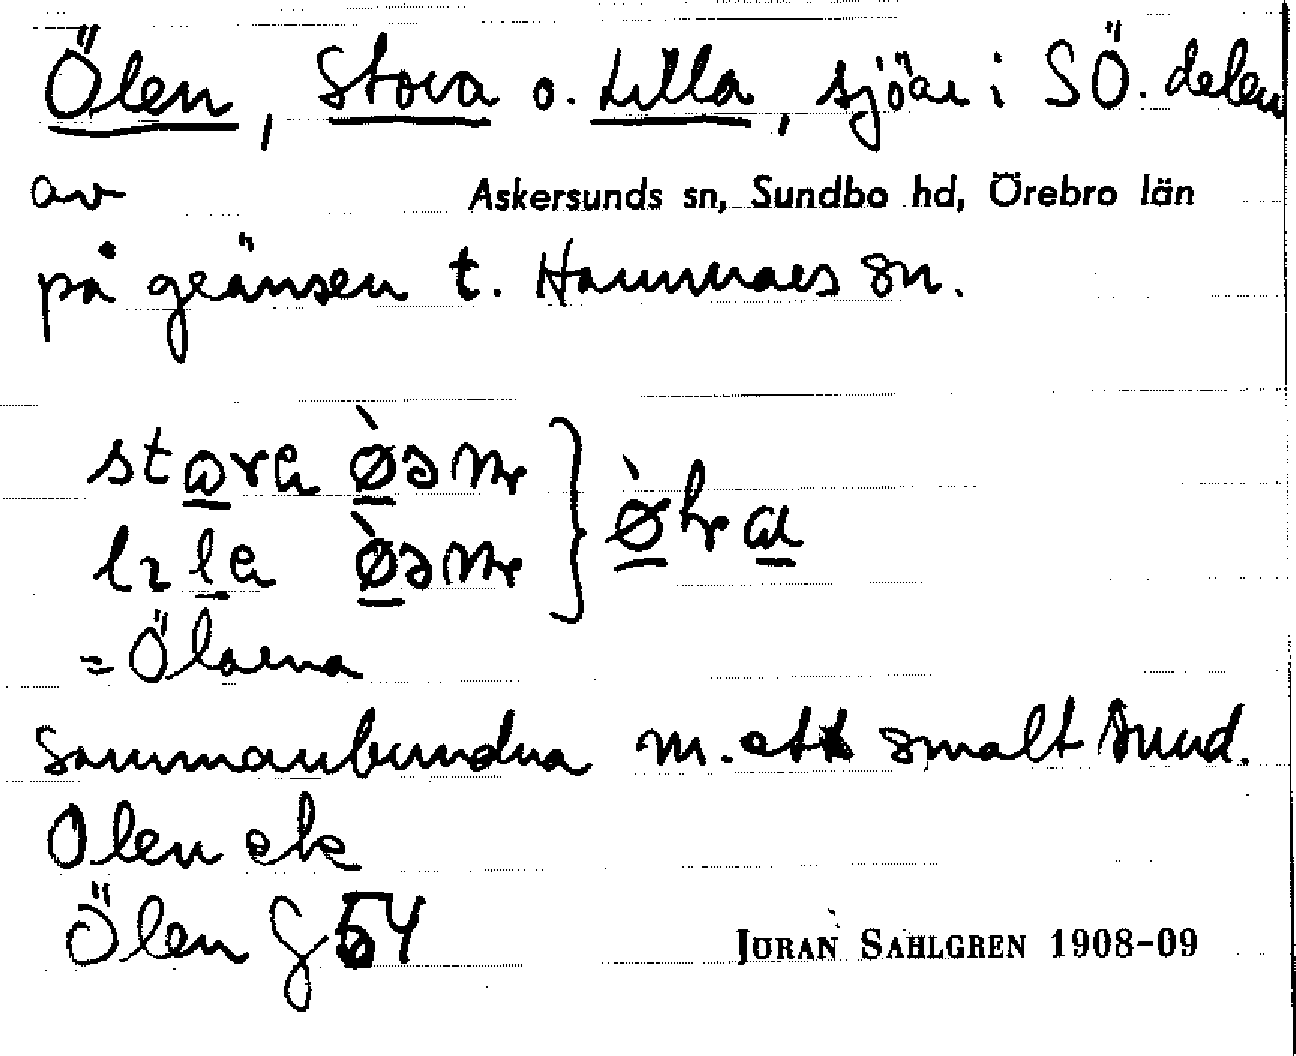 Ölen, Stora o. Lilla, sjöar i SÖ. delen
av Askersunds sn, Sundbo hd, Örebro län
på gränsen t. Hammars sn.
= Ölarna
Sammanbundna m. ett smalt sund.
Olen ek
Ölen G 54
JÖRAN SAHLGREN 1908-09